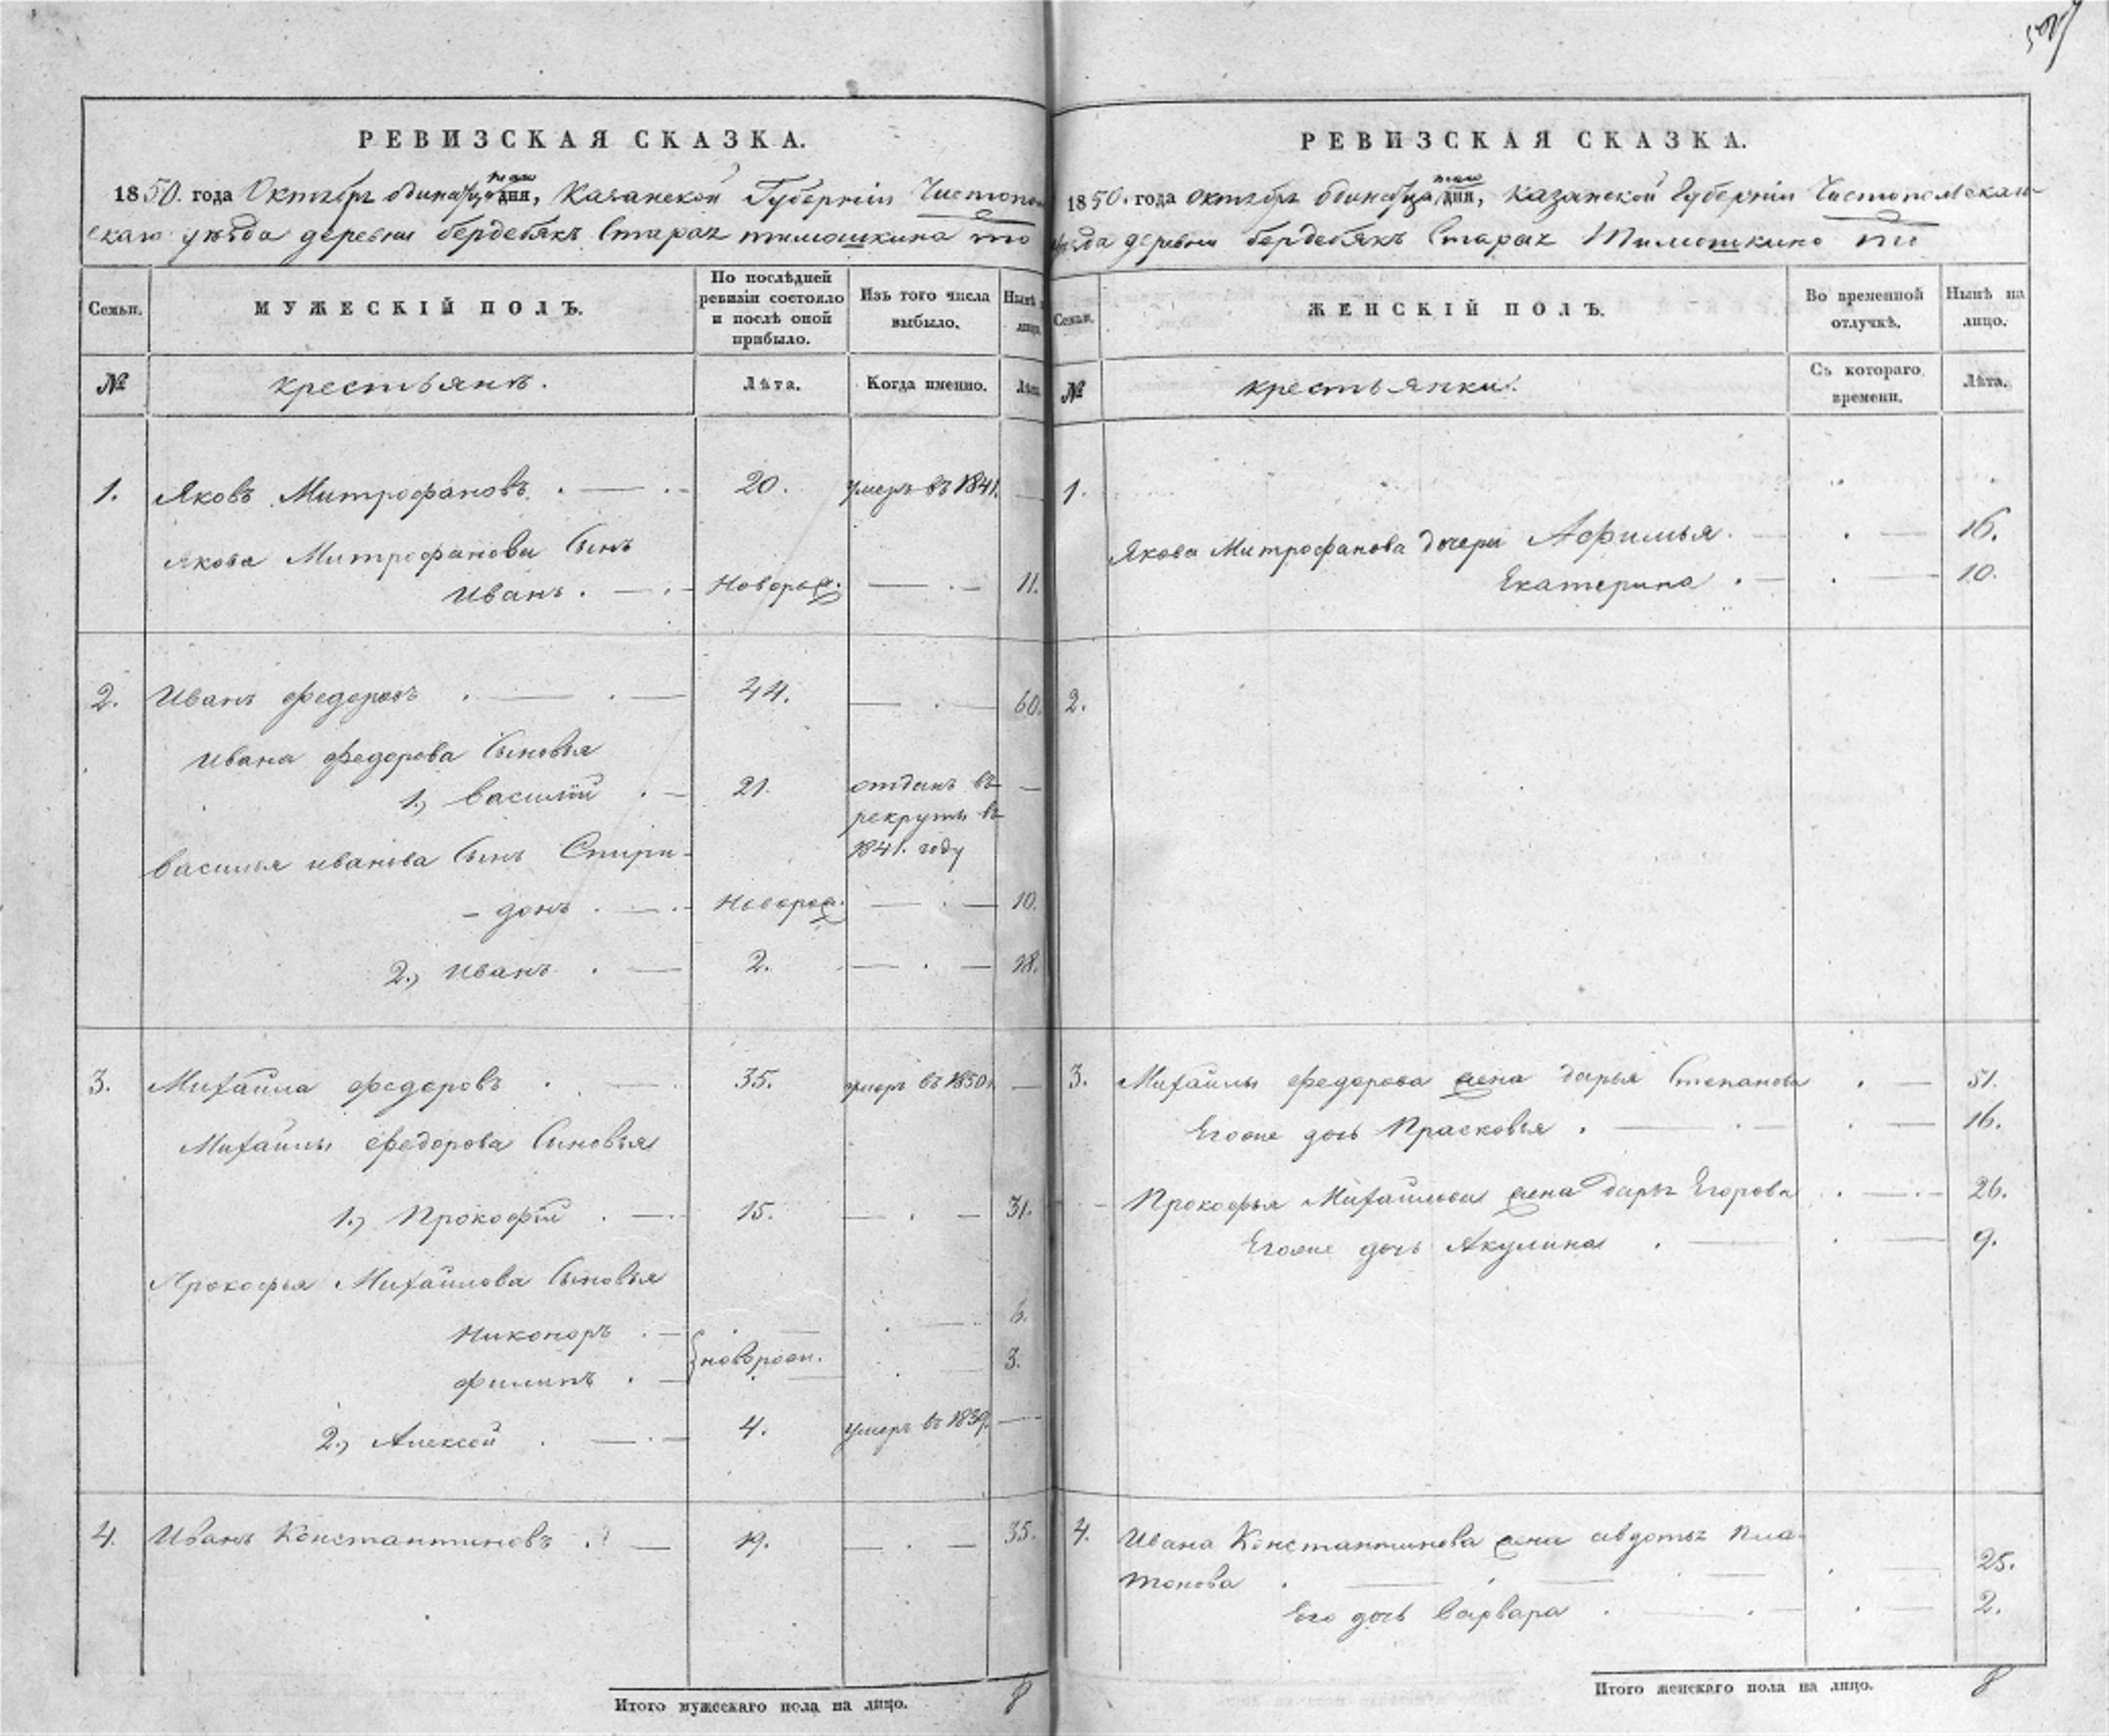 РЕВИЗСКАЯ СКАЗКА.
1850. года Октябр одинадца дня, Казанской Губерніи Чистопол
скаго уѣзда деревни бердебякъ Старах тимошкина то
Семьи.
МУЖЕСКІЙ ПОЛЪ.
По послѣдней ревизіи состояло и послѣ оной прибыло.
Изъ того числа выбыло.
Нынѣ лицо.
№
крестьянъ.
Лѣта.
Когда именно.
Лѣта
1. Яковъ Митрофановъ. 20. умеръ въ 1841.
Якова Митрофанова Сынъ
Иванъ. Новорож. 11.
2. Иванъ федоровъ 44. 60.
Ивана федорова Сыновья
1., василій 21. отданъ въ
рекруты въ
1841. году
василья иванова Сынъ Спири-
-донъ. Новорож. 10.
2., Иванъ 2. 18.
3. Михаила федоровъ 35. умеръ въ 1850.
Михаилы федорова Сыновья
1., Прокофій 15. 31.
Прокофья Михайлова Сыновья
Никоноръ 6.
новорож.
филипъ 3.
2., Алексей 4. умеръ въ 1839.
4. Иванъ Константиновъ 19. 35.
Итого мужескаго пола на лицо. 8
РЕВИЗСКАЯ СКАЗКА.
1850. года октябр одинадца дня, Казанской Губерніи Чистопольскаго
уѣзда деревни бердебякъ Старах Тимошкино то
Семьи.
ЖЕНСКІЙ ПОЛЪ.
Во временной отлучкѣ.
Нынѣ на лицо.
№
крестьянки.
Съ котораго времени.
Лѣта.
1.
Якова Митрофанова дочери Афимья. 16.
Екатерина 10.
2.
3. Михайлы федорова жена дарья Степанова 51.
Егоже дочь Прасковья 16.
Прокофья Михайлова жена дарья Егорова 26.
Егоже дочь Акулина 9.
4. Ивана Константинова жена авдотья Пла-
тонова 25.
Его дочь Варвара 2.
Итого женскаго пола на лицо. 8